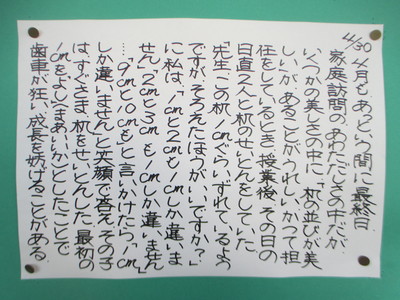 4/30 4月も、あっという間に最終日
家庭訪問のあわただしさの中だが
いくつかの美しさの中に、「机の並びが美
しい」が、あることがうれしい。かつて担
任をしているとき、授業後、その日の
日直2人と机のせいとんをしていた。
「先生、この机1cmぐらいずれているよう
ですが、そろえたほうがいいですか?」
に、私は、「1cmと2cmも1cmしか違いま
せん。2cmと3cmも1cmしか違いません
…9cmと10cmも」と言いかけたら「1cm
しか違いません」と笑顔で答え、その子
は、すぐさま、机をせいとんした。最初の
1cmをよしorまあいいかとしたことで
歯車が狂い、成長を妨げることがある。